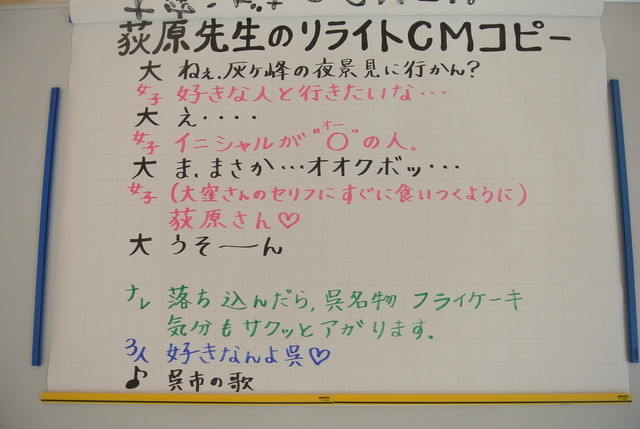 荻原先生のリライトCMコピー
大 ねぇ、灰ヶ峰の夜景見に行かん?
女子 好きな人と行きたいな…
大 え・・・・
女子 イニシャルが"〇"の人。
オー
大 ま、まさか…オオクボッ…
女子 (大窪さんのセリフにすぐに食いつくように)
荻原さん♡
大 うそ――ん
ナレ 落ち込んだら,呉名物 フライケーキ
気分もサクッとアがります.
3人 好きなんよ呉♡
♪ 呉市の歌